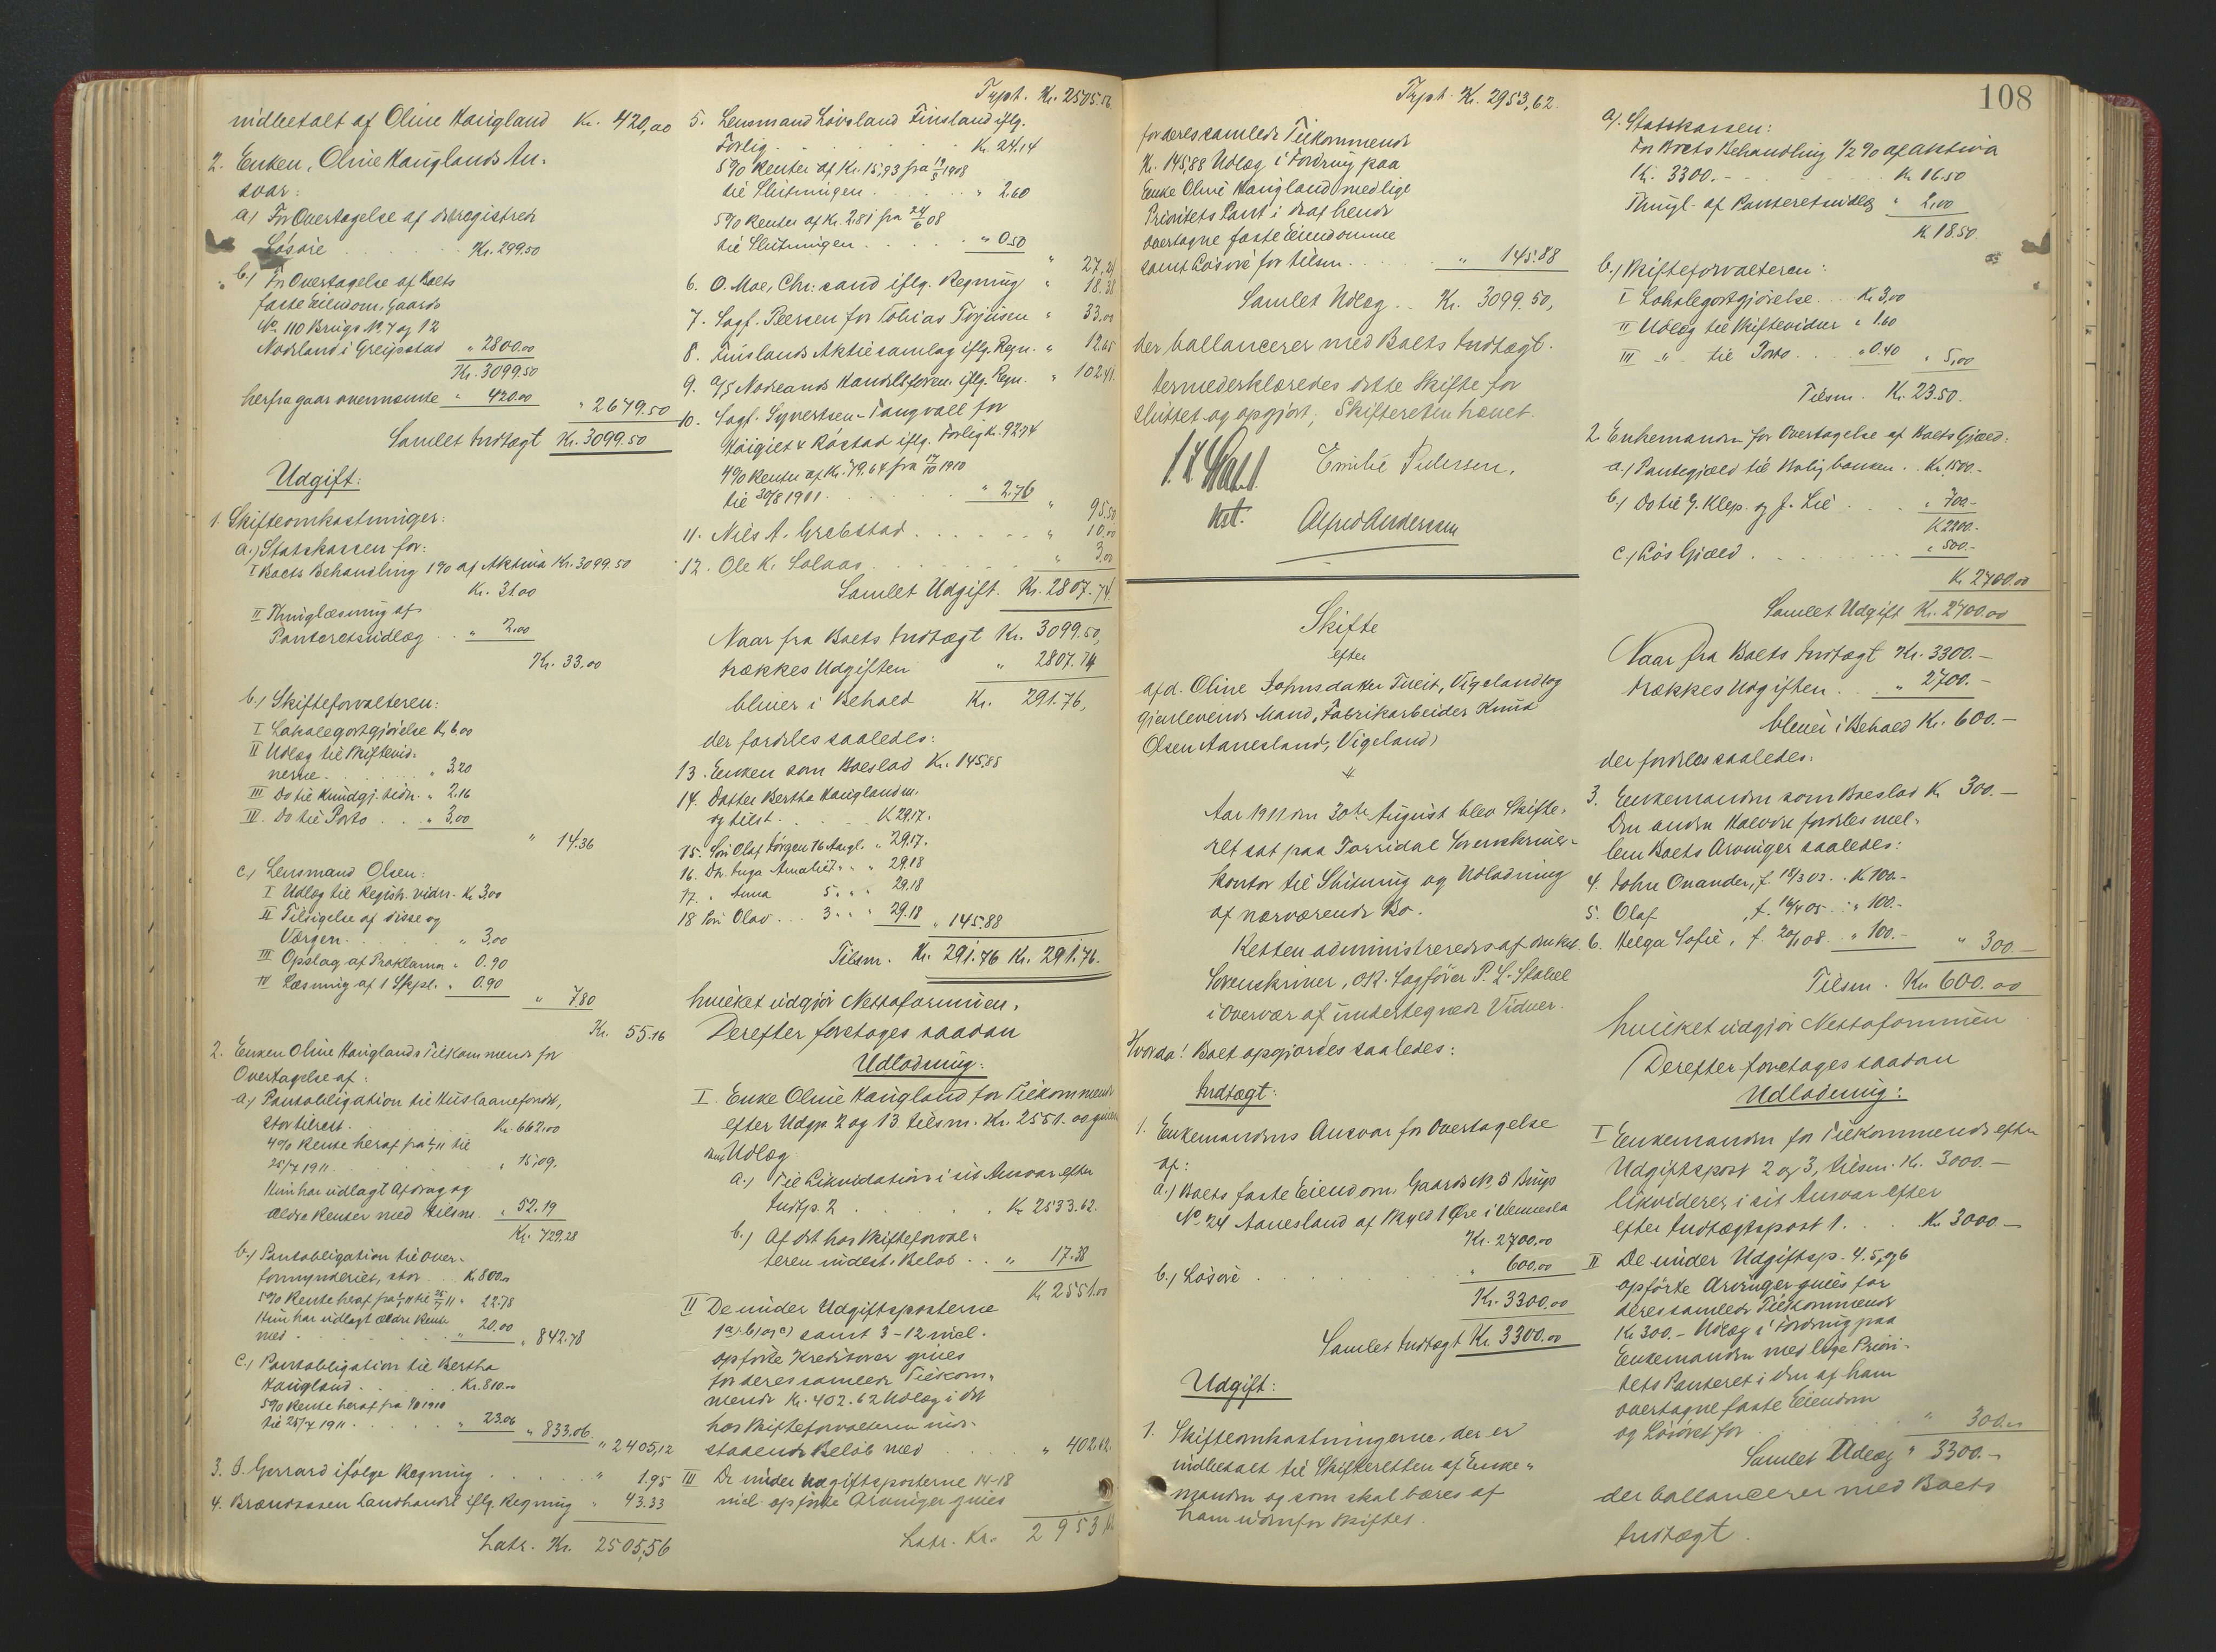 indbetalt af Oline Haugland Kr. 420,00
2. Enken, Oline Hauglands An-
svar:
a) For Overtagelse af det registrede
Løsøre . . . Kr. 299.50
b.) For Overtagelse af Boets
faste Eiendom, Gaards
No. 110 Brugs No. 7 og 12
Nodeland i Greipstad " 2800.00
Kr. 3099.50
herfra gaar ovennævnte " 420.00 " 2679.50
Samlet Indtægt Kr. 3099.50
Udgift:
1. Skifteomkostninger:
a.) Statskassen for:
I Boets Behandling 1% af Aktiva Kr. 3099.50
Kr. 31.00
II Thinglæsning af
Panteretsudlæg . . " 2.00
Kr. 33.00
b.) Skifteforvalteren:
I Lokalegodtgjørelse Kr. 6.00
II Udlæg til Skiftevid-
nerne . . . " 3.20
III Do til Kundgj. tidn. " 2.16
IV. Do til Porto . . " 3.00
" 14.36
c.) Lensmand Olsen:
I Udlæg til Registr. vidn. Kr. 3.00
II Tilsigelse af disse og
Værgen . . . " 3.00
III Opslag af Proklama " 0.90
IV Læsning af 1 Skpl. " 0.90
" 7.80
Kr. 55.16
2. Enken Oline Hauglands Tilkommende for
Overtagelse af:
a.) Pantobligation til Huslaanefondet,
stor tilrest . . . Kr. 662.00
4% Rente heraf fra 1/1 11 til
25/7 1911 . . . " 15.09.
Hun har udlagt Afdrag og
ældre Renter med tilsm. " 52.19
Kr. 729.28
b.) Pantobligation til Over-
formynderiet, stor . . Kr. 800.00
5% Rente heraf fra 1/1 11 til 25/7 11 " 22.78
Hun har udlagt ældre Rente
med . . . " 20.00 " 842.78
c.) Pantobligation til Bertha
Haugland . . . Kr. 810.00
5% Rente heraf fra 1910
til 25/7 1911 . . . " 23.06 " 833.06
" 2405,12
3. J. Gerrard ifølge Regning . . . " 1.95
4. Brændsasen Landhandel iflg. Regning " 43.33
Latr. Kr. 2505,56
Trspt. Kr. 2505.56
5. Lensmand Løvsland Finsland iflg.
Forlig . . . Kr. 24.14
5% Renter af Kr. 15,93 fra 1908
til Slutningen . . . " 2.60
5% Renter af Kr. 2.81 fra 24/6 08
til Slutningen . . . " 0.50
" 27.24
6. O. Moe, Chr: sand iflg. Regning " 18.38
7. Sagf. Peersen for Tobias Torjusen " 33.00
8. Finslands Aktiesamlag iflg. Regn. " 12.65
9. A/S Nodelands Handelsforen. iflg. Regn. " 102.41
10. Sagf. Syvertsen-Tangvall for
Høigilt & Røstad iflg. Forlig Kr. 92.74
4% Renter af Kr. 79.64 fra 17/10 1910
til 30/8 1911 . . . " 2.76
" 95.50
11. Niels A. Grebstad . . . " 10.00
12. Ole K. Solaas . . . " 3.00
Samlet Udgift. Kr. 2807.74
Naar fra Boets Indtægt Kr. 3099.50,
trækkes Udgiften " 2807.74
bliver i Behold Kr. 291.76,
der fordeles saaledes:
13. Enken som Boeslod Kr. 145.88
14. Datter Bertha Haugland m.
og tilst . . . K 29.17.
15. Søn Olaf Jørgen 16 Aar gl. " 29.17.
16. Dtr. Inga Amalie " " 29.18
17. " Anna 5 " " 29.18
18 Søn Olav . . . 3 " " 29.18 " 145.88
Tilsm. Kr. 291.76 Kr. 291.76.
hvilket udgjør Nettoformuen.
Derefter foretoges saadan
Udlodning:
I. Enke Oline Haugland for Tilkommende
efter Udgp. 2 og 13. tilsm. Kr. 2551.00 gives
Udlæg
a.) Til Likvidation i sit Ansvar efter
Indtp. 2 . . . Kr. 2533.62.
b.) Af det hos Skifteforval-
teren indest. Beløb . . " 17.38
Kr 2551.00
II De under Udgiftsposterne
1 a) b) og c) samt 3-12 incl.
opførte Kreditorer gives
for deres samlede Tilkom-
mende Kr. 402.62 Udlæg i det
hos Skifteforvalteren inde-
staaende Beløb med . . . " 402.62.
III De under Udgiftsposterne 14-18
incl. opførte Arvinger gives
Latr. Kr. 2953,62
Trspt. Kr. 2953,62.
for deres samlede Tilkommende
Kr. 145,88 Udlæg i Fordring paa
Enke Oline Haugland med lige
Prioritets Pant i de af hende
overtagne faste Eiendomme
samt Løsøre for tilsm. . . . " 145.88
Samlet Udlæg . . Kr. 3099.50,
der ballancerer med Boets Indtægt.
Hermed erklæredes dette Skifte for
sluttet og opgjort; Skifteretten hævet.
Emilie Pedersen.
kst. Alfred Andersen
Skifte
efter
afd. Oline Johnsdatter Tveit, Vigeland og
gjenlevende Mand, Fabrikarbeider Knud
Olsen Aanesland, Vigeland,
Aar 1911 den 30te August blev Skifte-
ret sat paa Torridal Sorenskriver-
kontor til Slutning og Udlodning
af nærværende Bo.
Retten administreredes af den kst.
Sorenskriver, O.R. Sagfører P. L. Stabel
i Overvær af undertegnede Vidner.
Hvorda! Boet opgjordes saaledes:
Indtægt:
1. Enkemandens Ansvar for Overtagelse
af:
a.) Boets faste Eiendom, Gaards No. 5 Brugs
No. 24 Aanesland af Skyld 1 Øre i Vennesla
Kr. 2700.00
b.) Løsøre . . . " 600.00
Kr. 3300.00
Samlet Indtægt Kr. 3300.00
Udgift:
1. Skifteomkostningerne, der er
indbetalt til Skifteretten af Enke-
manden og som skal bæres af
ham udenfor Skiftet.
108
a). Statskassen:
For Boets Behandling 1/2 % af Aktiva
Kr. 3300.- . . . Kr. 16.50
Thingl. af Panteretsudlæg " 2.00
Kr. 18.50.
b.) Skifteforvalteren:
I Lokalegodtgjørelse . . Kr. 3,00
II Udlæg til Skiftevidner " 1.60
III " - til Porto . . . " 0.40 " 5,00
Tilsm. Kr. 23.50.
2. Enkemanden for Overtagelse af Boets Gjæld:
a.) Pantegjæld til Boligbanken . . Kr. 1500.-
b.) Do til G. Klep. og J. Lie . . . " 700.-
K 2200.-
c.) Løs Gjæld . . . " 500.-
Kr 2700.00
Samlet Udgift Kr. 2700.00
Naar fra Boets Indtægt Kr. 3300.-
trækkes Udgiften . . . " 2700.-
bliver i Behold Kr. 600.-
der fordeles saaledes:
3. Enkemanden som Boeslod Kr 300.-
Den anden Halvdel fordeles mel-
lem Boets Arvinger saaledes:
4. John Onander, f. 03 . . Kr 100.-
5. Olaf , f. 05 . . " 100.-
6. Helga Sofie, f. 08 . . " 100.- " 300-
Tilsm. Kr. 600.00
hvilket udgjør Nettoformuen
Derefter foretoges saadan
Udlodning:
I Enkemanden for Tilkommende efter
Udgiftspost 2 og 3, tilsm. Kr. 3000.-
likviderer i sit Ansvar efter
efter Indtægtspost 1. . . Kr. 3000-
II De under Udgiftsp. 4, 5, og 6
opførte Arvinger gives for
deres samlede Tilkommende
Kr 300.- Udlæg i Fordring paa
Enkemanden med lige Priori-
tets Panteret i den af ham
overtagne faste Eiendom
og Løsøret for . . . " 300.00
Samlet Udlæg " 3300.-
der ballancerer med Boets
Indtægt.